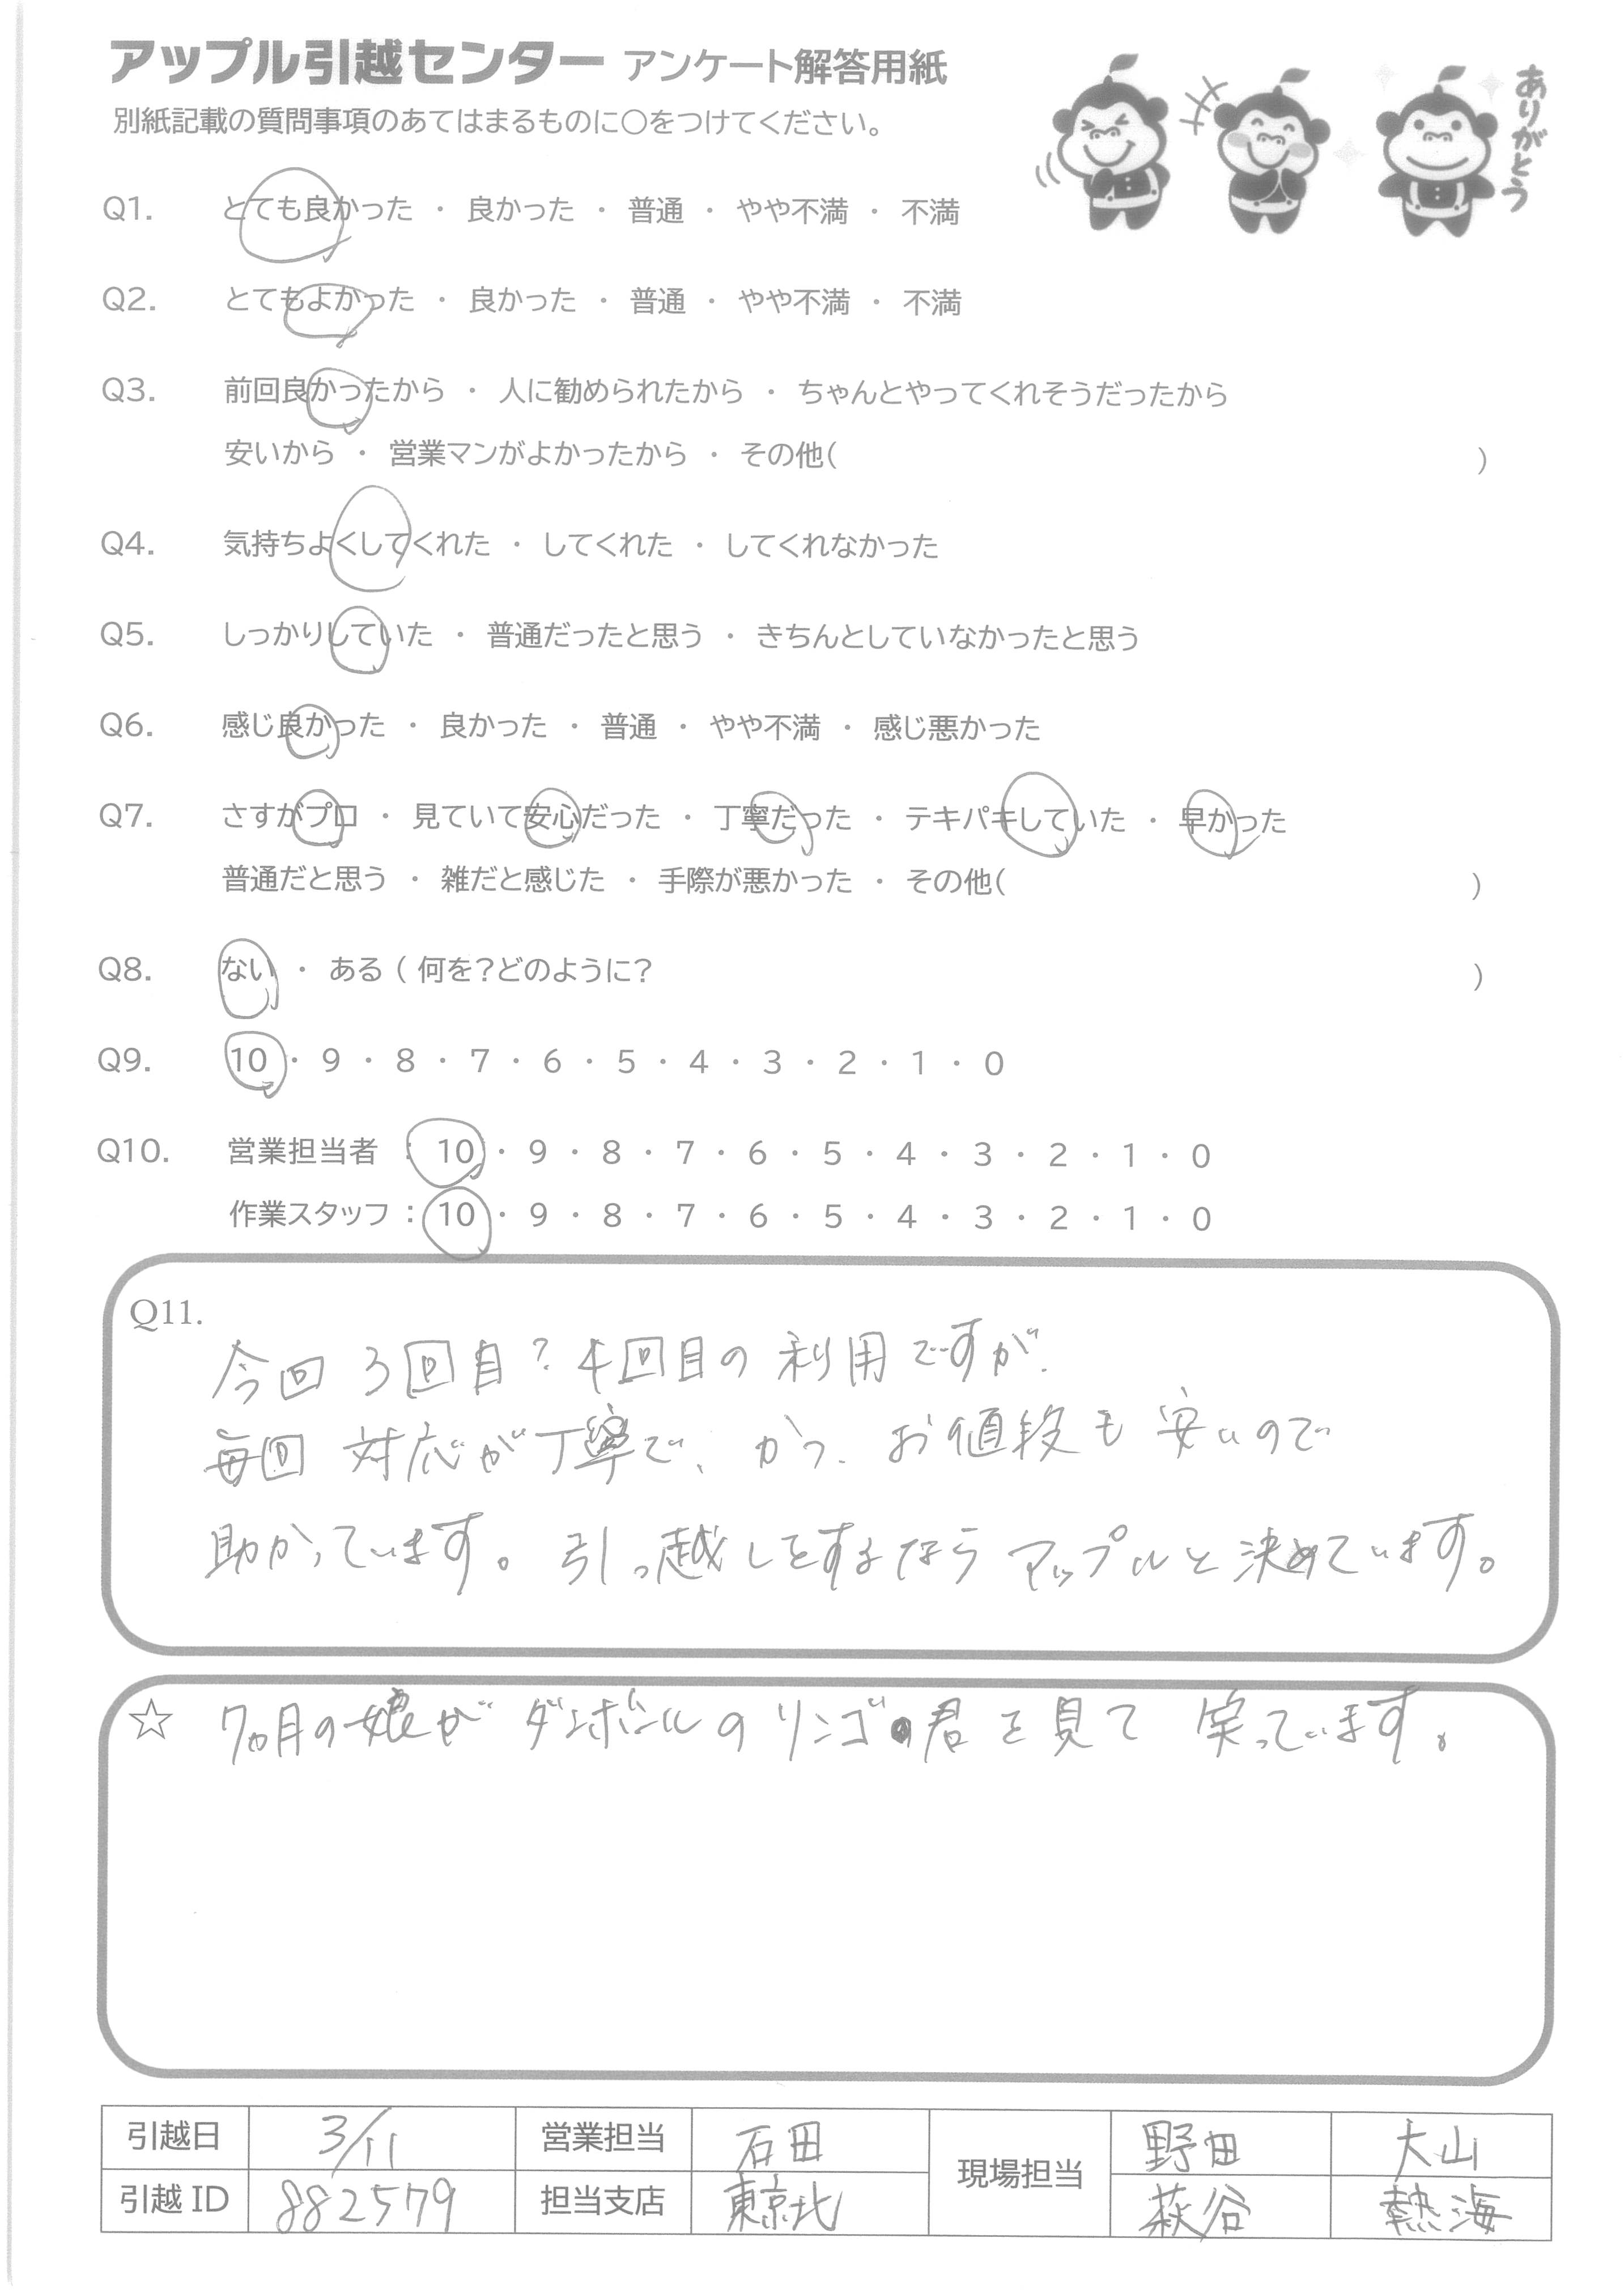 アップル引越センター アンケート解答用紙
ありがとう
別紙記載の質問事項のあてはまるものに〇をつけてください。
Q1. とても良かった ・ 良かった ・ 普通 ・ やや不満 ・ 不満
Q2. とてもよかった ・ 良かった ・ 普通 ・ やや不満 ・ 不満
Q3. 前回良かったから ・ 人に勧められたから ・ ちゃんとやってくれそうだったから
安いから ・ 営業マンがよかったから ・ その他( )
Q4. 気持ちよくしてくれた ・ してくれた ・ してくれなかった
Q5. しっかりしていた ・ 普通だったと思う ・ きちんとしていなかったと思う
Q6. 感じ良かった ・ 良かった ・ 普通 ・ やや不満 ・ 感じ悪かった
Q7. さすがプロ ・ 見ていて安心だった ・ 丁寧だった ・ テキパキしていた ・ 早かった
普通だと思う ・ 雑だと感じた ・ 手際が悪かった ・ その他( )
Q8. ない ・ ある ( 何を?どのように? )
Q9. 10 ・ 9 ・ 8 ・ 7 ・ 6 ・ 5 ・ 4 ・ 3 ・ 2 ・ 1 ・ 0
Q10. 営業担当者 : 10 ・ 9 ・ 8 ・ 7 ・ 6 ・ 5 ・ 4 ・ 3 ・ 2 ・ 1 ・ 0
作業スタッフ : 10 ・ 9 ・ 8 ・ 7 ・ 6 ・ 5 ・ 4 ・ 3 ・ 2 ・ 1 ・ 0
Q11.
今回 3回目? 4回目の利用ですが、
毎回 対応が丁寧で、かつ、お値段も安いので
助かっています。引っ越しをするならアップルと決めています。
☆ 7ヵ月の娘がダンボールのリンゴの君を見て 笑っています。
引越日 3/11 営業担当 石田 現場担当 野田 大山
引越 ID 882579 担当支店 東京北 萩谷 熱海